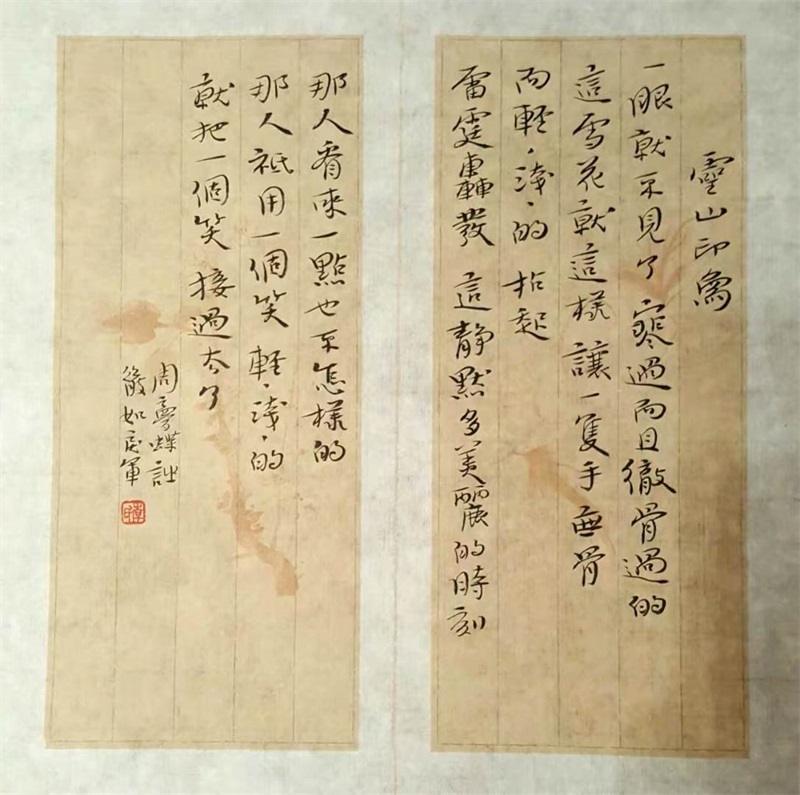 靈山印象
一眼就不見了 寒過而且徹骨過的
這雪花就這樣讓一隻手無骨
而輕、淺、的 拈起
雷霆轟發 這靜默多美麗的時刻
那人看來一點也不怎樣的
那人祇用一個笑 輕、淺、的
就把一個笑 接過去了
周夢蝶詩
筱如